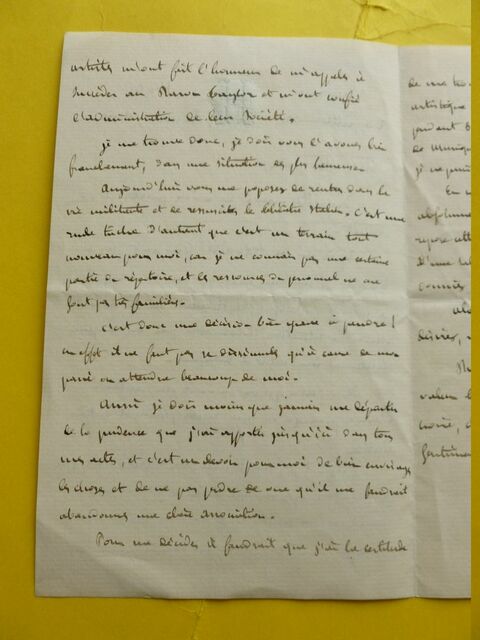 artistes m'ont fait l'honneur de m'appeler à
succéder au Baron Taylor et m'ont confié
l'administration de leur Société.
je me trouve donc, je dois vous l'avouer bien
franchement, dans une situation des plus heureuses
Aujourd'hui vous me proposez de rentrer dans la
vie militante et de ressusciter le théâtre Italien. C'est une
rude tâche d'autant que c'est un terrain tout
nouveau pour moi, car je ne connais pas une certaine
partie du répertoire, et les ressources du personnel ne me
sont pas très familières.
c'est donc une décision bien grave à prendre!
en effet il ne faut pas se dissimuler qu'à cause de mon
passé on attendra beaucoup de moi.
Aussi je dois moins que jamais me départir
de la prudence que j'ai apportée jusqu'ici dans tous
mes actes, et c'est un devoir pour moi de bien envisager
les choses et de ne pas perdre de vue qu'il me faudrait
abandonner une chère association.
Pour me décider il faudrait que j'aie la certitude
de me
artistique
pendant
de
je ne puis
En
d'une
valeur